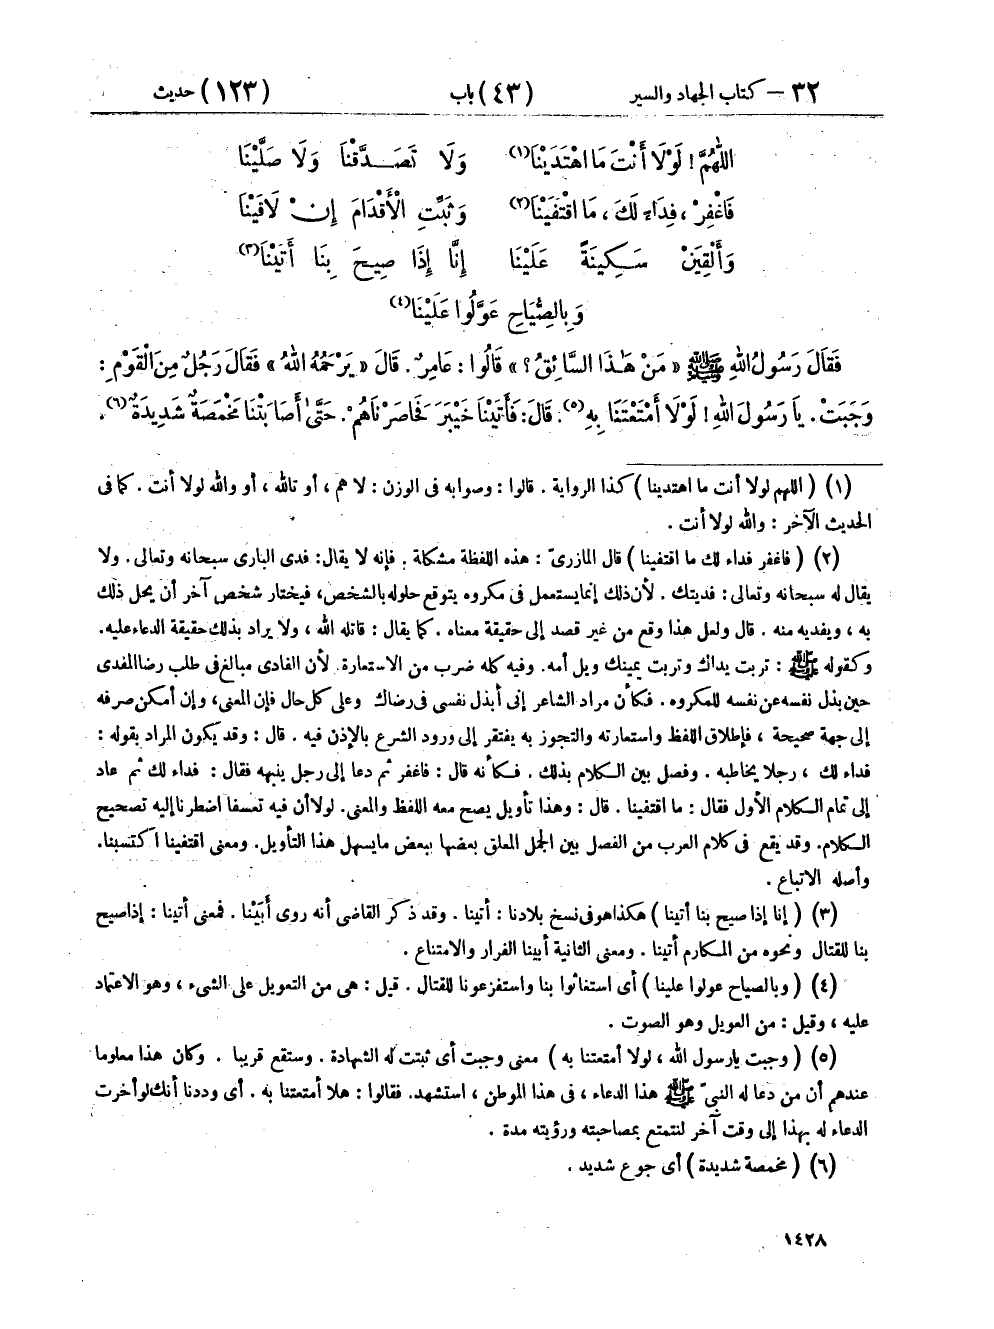 ٣٢ – كتاب الجهاد والسير (٤٣) باب (١٢٣) حديث
اللّٰهُمَّ ! لَوْلَا أَنْتَ مَا اهْتَدَيْنَا(١) وَلَا تَصَدَّقْنَا وَلَا صَلَّيْنَا
فَاغْفِرْ ، فِدَاءً لَكَ ، مَا اقْتَفَيْنَا(٢) وَثَبِّتِ الْأَقْدَامَ إِنْ لَاقَيْنَا
وَأَلْقِيَنْ سَكِينَةً عَلَيْنَا إِنَّا إِذَا صِيحَ بِنَا أَتَيْنَا(٣)
وَبِالصِّيَاحِ عَوَّلُوا عَلَيْنَا(٤)
فَقَالَ رَسُولُ اللهِ ﷺ « مَنْ هَٰذَا السَّائِقُ ؟ » قَالُوا : عَامِرٌ . قَالَ « يَرْحَمُهُ اللهُ » فَقَالَ رَجُلٌ مِنَ الْقَوْمِ :
وَجَبَتْ . يَا رَسُولَ اللهِ ! لَوْلَا أَمْتَعْتَنَا بِهِ(٥) . قَالَ : فَأَتَيْنَا خَيْبَرَ فَحَاصَرْنَاهُمْ . حَتَّى أَصَابَتْنَا مَخْمَصَةٌ شَدِيدَةٌ(٦) .
(١) ( اللهم لولا أنت ما اهتدينا ) كذا الرواية . قالوا : وصوابه فى الوزن : لا هم ، أو تالله ، أو والله لولا أنت . كما فى
الحديث الآخر : والله لولا أنت .
(٢) ( فاغفر فداء لك ما اقتفينا ) قال المازرىّ : هذه اللفظة مشكلة . فإنه لا يقال : فدى البارى سبحانه وتعالى . ولا
يقال له سبحانه وتعالى : فديتك . لأن ذلك إنما يستعمل فى مكروه يتوقع حلوله بالشخص ، فيختار شخص آخر أن يحل ذلك
به ، ويفديه منه . قال ولعل هذا وقع من غير قصد إلى حقيقة معناه . كما يقال : قاتله الله ، ولا يراد بذلك حقيقة الدعاء عليه .
وكقوله ﷺ : تربت يداك وتربت يمينك ويل أمه . وفيه كله ضرب من الاستعارة . لأن الفادى مبالغ فى طلب رضا المفدى
حين بذل نفسه عن نفسه للمكروه . فكأن مراد الشاعر إنى أبذل نفسى فى رضاك وعلى كل حال فإن المعنى ، وإن أمكن صرفه
إلى جهة صحيحة ، فإطلاق اللفظ واستعارته والتجوز به يفتقر إلى ورود الشرع بالإذن فيه . قال : وقد يكون المراد بقوله :
فداء لك ، رجلا يخاطبه . وفصل بين الكلام بذلك . فكأنه قال : فاغفر ثم دعا إلى رجل ينبهه فقال : فداء لك ثم عاد
إلى تمام الكلام الأول فقال : ما اقتفينا . قال : وهذا تأويل يصح معه اللفظ والمعنى . لولا أن فيه تعسفا اضطرنا إليه تصحيح
الكلام . وقد يقع فى كلام العرب من الفصل بين الجمل المعلق بعضها ببعض ما يسهل هذا التأويل . ومعنى اقتفينا اكتسبنا .
وأصله الاتباع .
(٣) ( إنا إذا صيح بنا أتينا ) هكذا هو فى نسخ بلادنا : أتينا . وقد ذكر القاضى أنه روى أَبَيْنَا . فمعنى أتينا : إذا صيح
بنا للقتال ونحوه من المكارم أتينا . ومعنى الثانية أبينا الفرار والامتناع .
(٤) ( وبالصياح عولوا علينا ) أى استغاثوا بنا واستفزعونا للقتال . قيل : هى من التعويل على الشىء ، وهو الاعتماد
عليه ، وقيل : من العويل وهو الصوت .
(٥) ( وجبت يا رسول الله ، لولا أمتعتنا به ) معنى وجبت أى ثبتت له الشهادة . وستقع قريبا . وكان هذا معلوما
عندهم أن من دعا له النبىّ ﷺ هذا الدعاء ، فى هذا الموطن ، استشهد . فقالوا : هلا أمتعتنا به . أى وددنا أنك لو أخرت
الدعاء له بهذا إلى وقت آخر لنتمتع بمصاحبته ورؤيته مدة .
(٦) ( مخمصة شديدة ) أى جوع شديد .
١٤٢٨